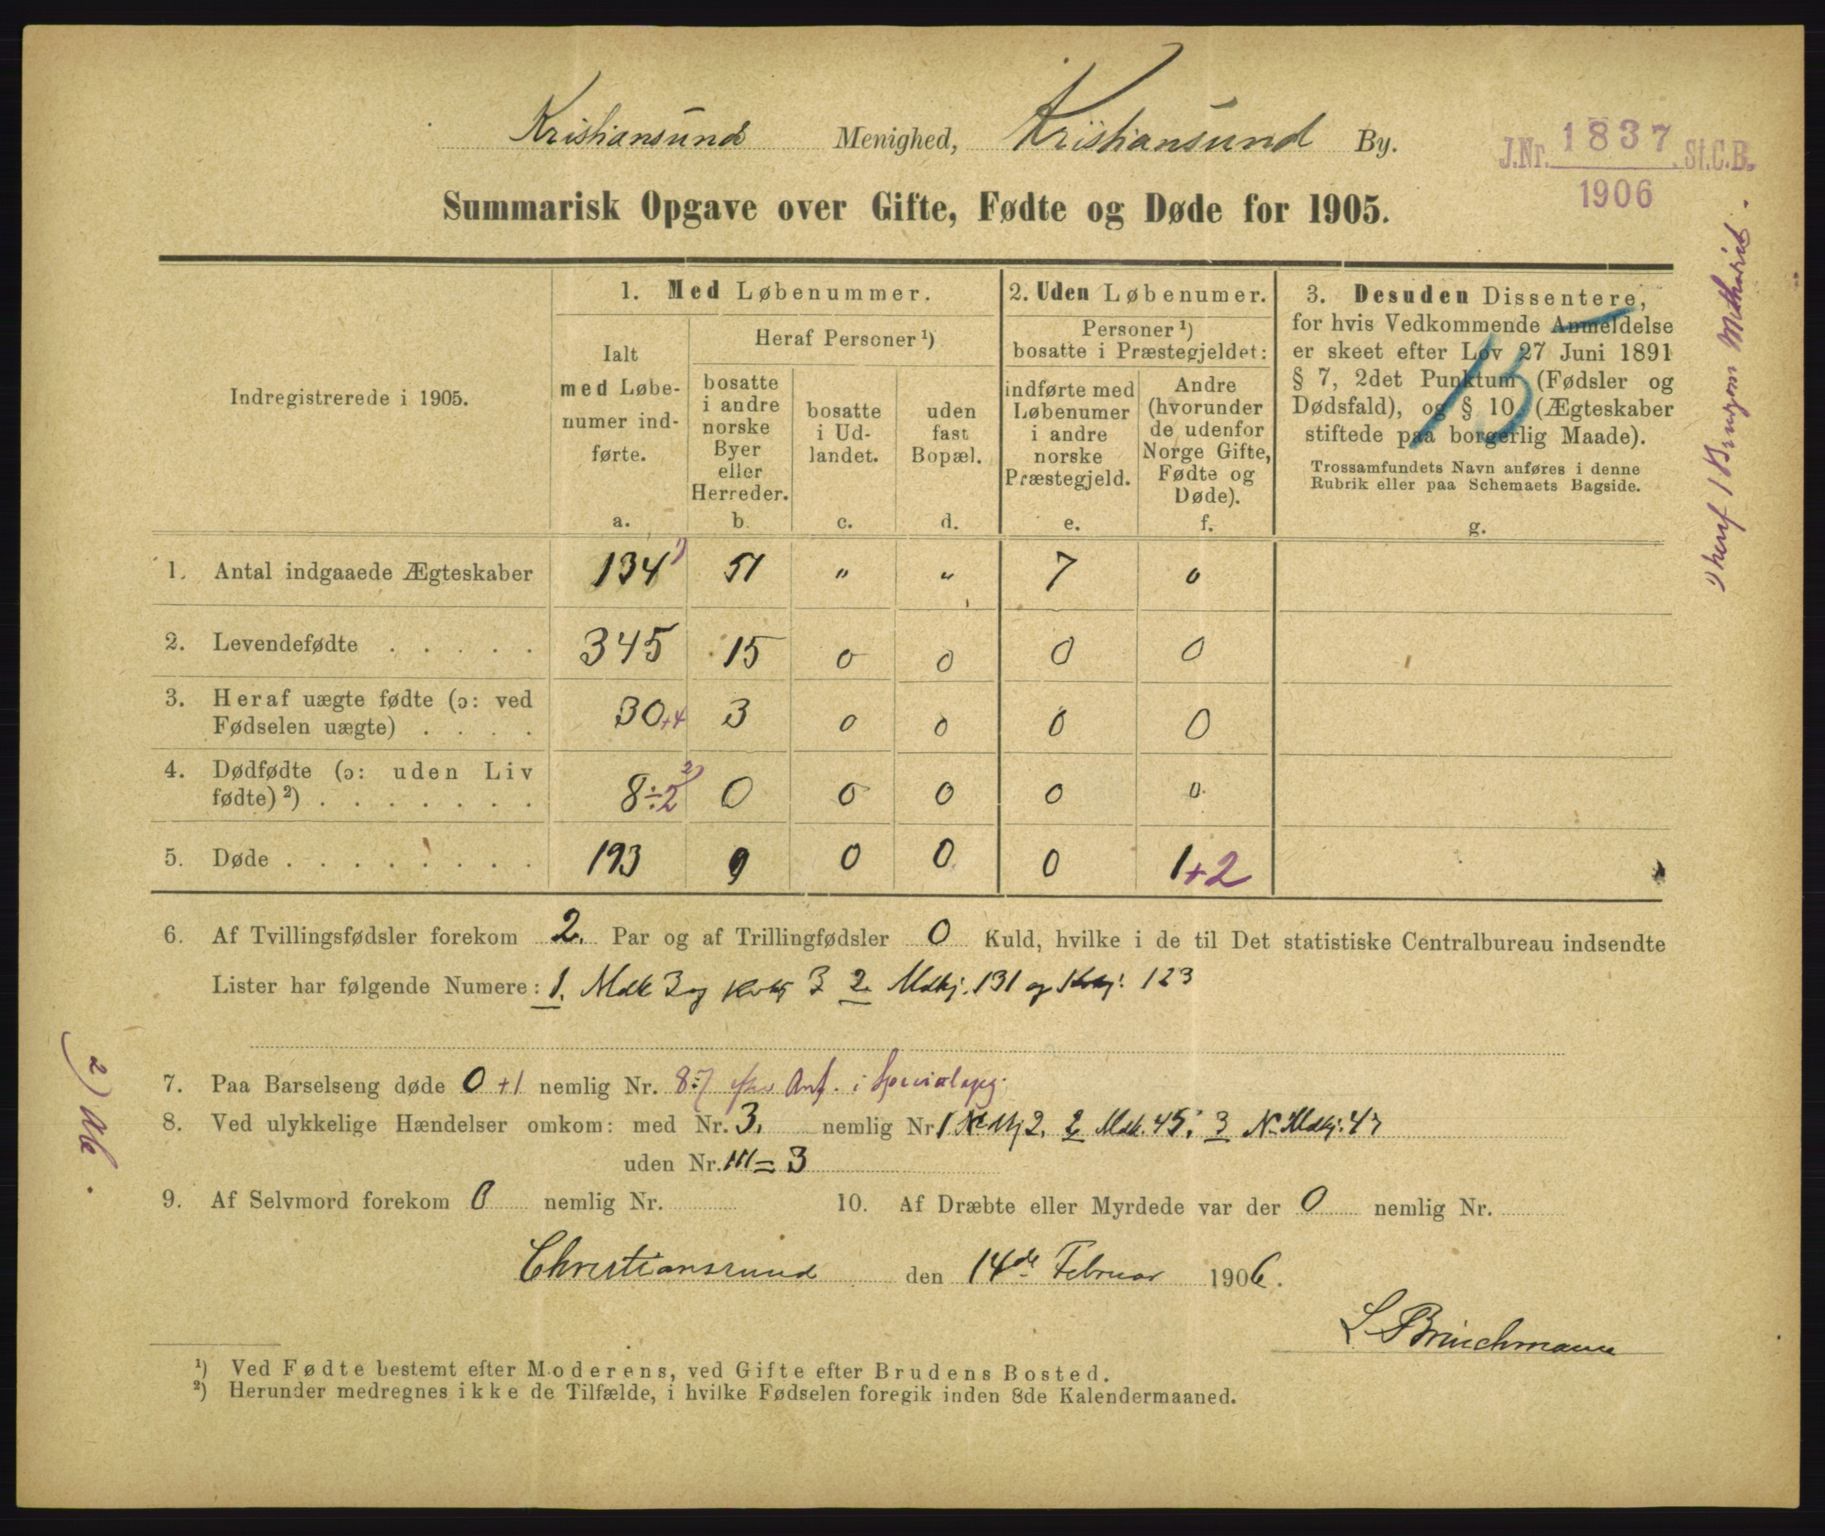 Kristiansund Menighed, Kristiansund By.
J.Nr. 1837 St.C.B.
1906
Summarisk Opgave over Gifte, Fødte og Døde for 1905.
Indregistrerede i 1905.
1. Med Løbenummer.
Ialt
med Løbe-
numer ind-
førte.
a.
Heraf Personer ¹)
bosatte
i andre
norske
Byer
eller
Herreder.
b
bosatte
i Ud-
landet.
c.
uden
fast
Bopæl.
d.
2. Uden Løbenumer.
Personer ¹)
bosatte i Præstegjeldet:
indførte med
Løbenumer
i andre
norske
Præstegjeld.
e.
Andre
(hvorunder
de udenfor
Norge Gifte,
Fødte og
Døde).
f.
3. Desuden Dissentere,
for hvis Vedkommende Anmeldelse
er skeet efter Lov 27 Juni 1891
§ 7, 2det Punktum (Fødsler og
Dødsfald), og § 10 (Ægteskaber
stiftede paa borgerlig Maade).
Trossamfundets Navn anføres i denne
Rubrik eller paa Schemaets Bagside.
g.
1. Antal indgaaede Ægteskaber 134 ¹) 51 " " 7 0
2. Levendefødte . . . . . 345 15 0 0 0 0
3. Heraf uægte fødte (ɔ: ved
Fødselen uægte) . . . . 30+4 3 0 0 0 0
4. Dødfødte (ɔ: uden Liv
fødte) ²) . . . . . . . 8÷2 ²) 0 0 0 0 0
5. Døde . . . . . . . . 193 9 0 0 0 1+2
6. Af Tvillingsfødsler forekom 2. Par og af Trillingfødsler 0 Kuld, hvilke i de til Det statistiske Centralbureau indsendte
Lister har følgende Numere: 1. Mdk 3 og Kvkj 3 2. Mdkj. 131 og Kvkj: 123
7. Paa Barselseng døde 0 +1 nemlig Nr. 87 Anf. i
8. Ved ulykkelige Hændelser omkom: med Nr. 3. nemlig Nr 1 2, 2 Mdk. 45; 3 N. Mdkj: 47
uden Nr. III = 3
9. Af Selvmord forekom 0 nemlig Nr. 10. Af Dræbte eller Myrdede var der 0 nemlig Nr.
Christianssund den 14de Februar 1906.
L. Brinchmann
¹) Ved Fødte bestemt efter Moderens, ved Gifte efter Brudens Bosted.
²) Herunder medregnes ikke de Tilfælde, i hvilke Fødselen foregik inden 8de Kalendermaaned.
¹) heraf 1
2)